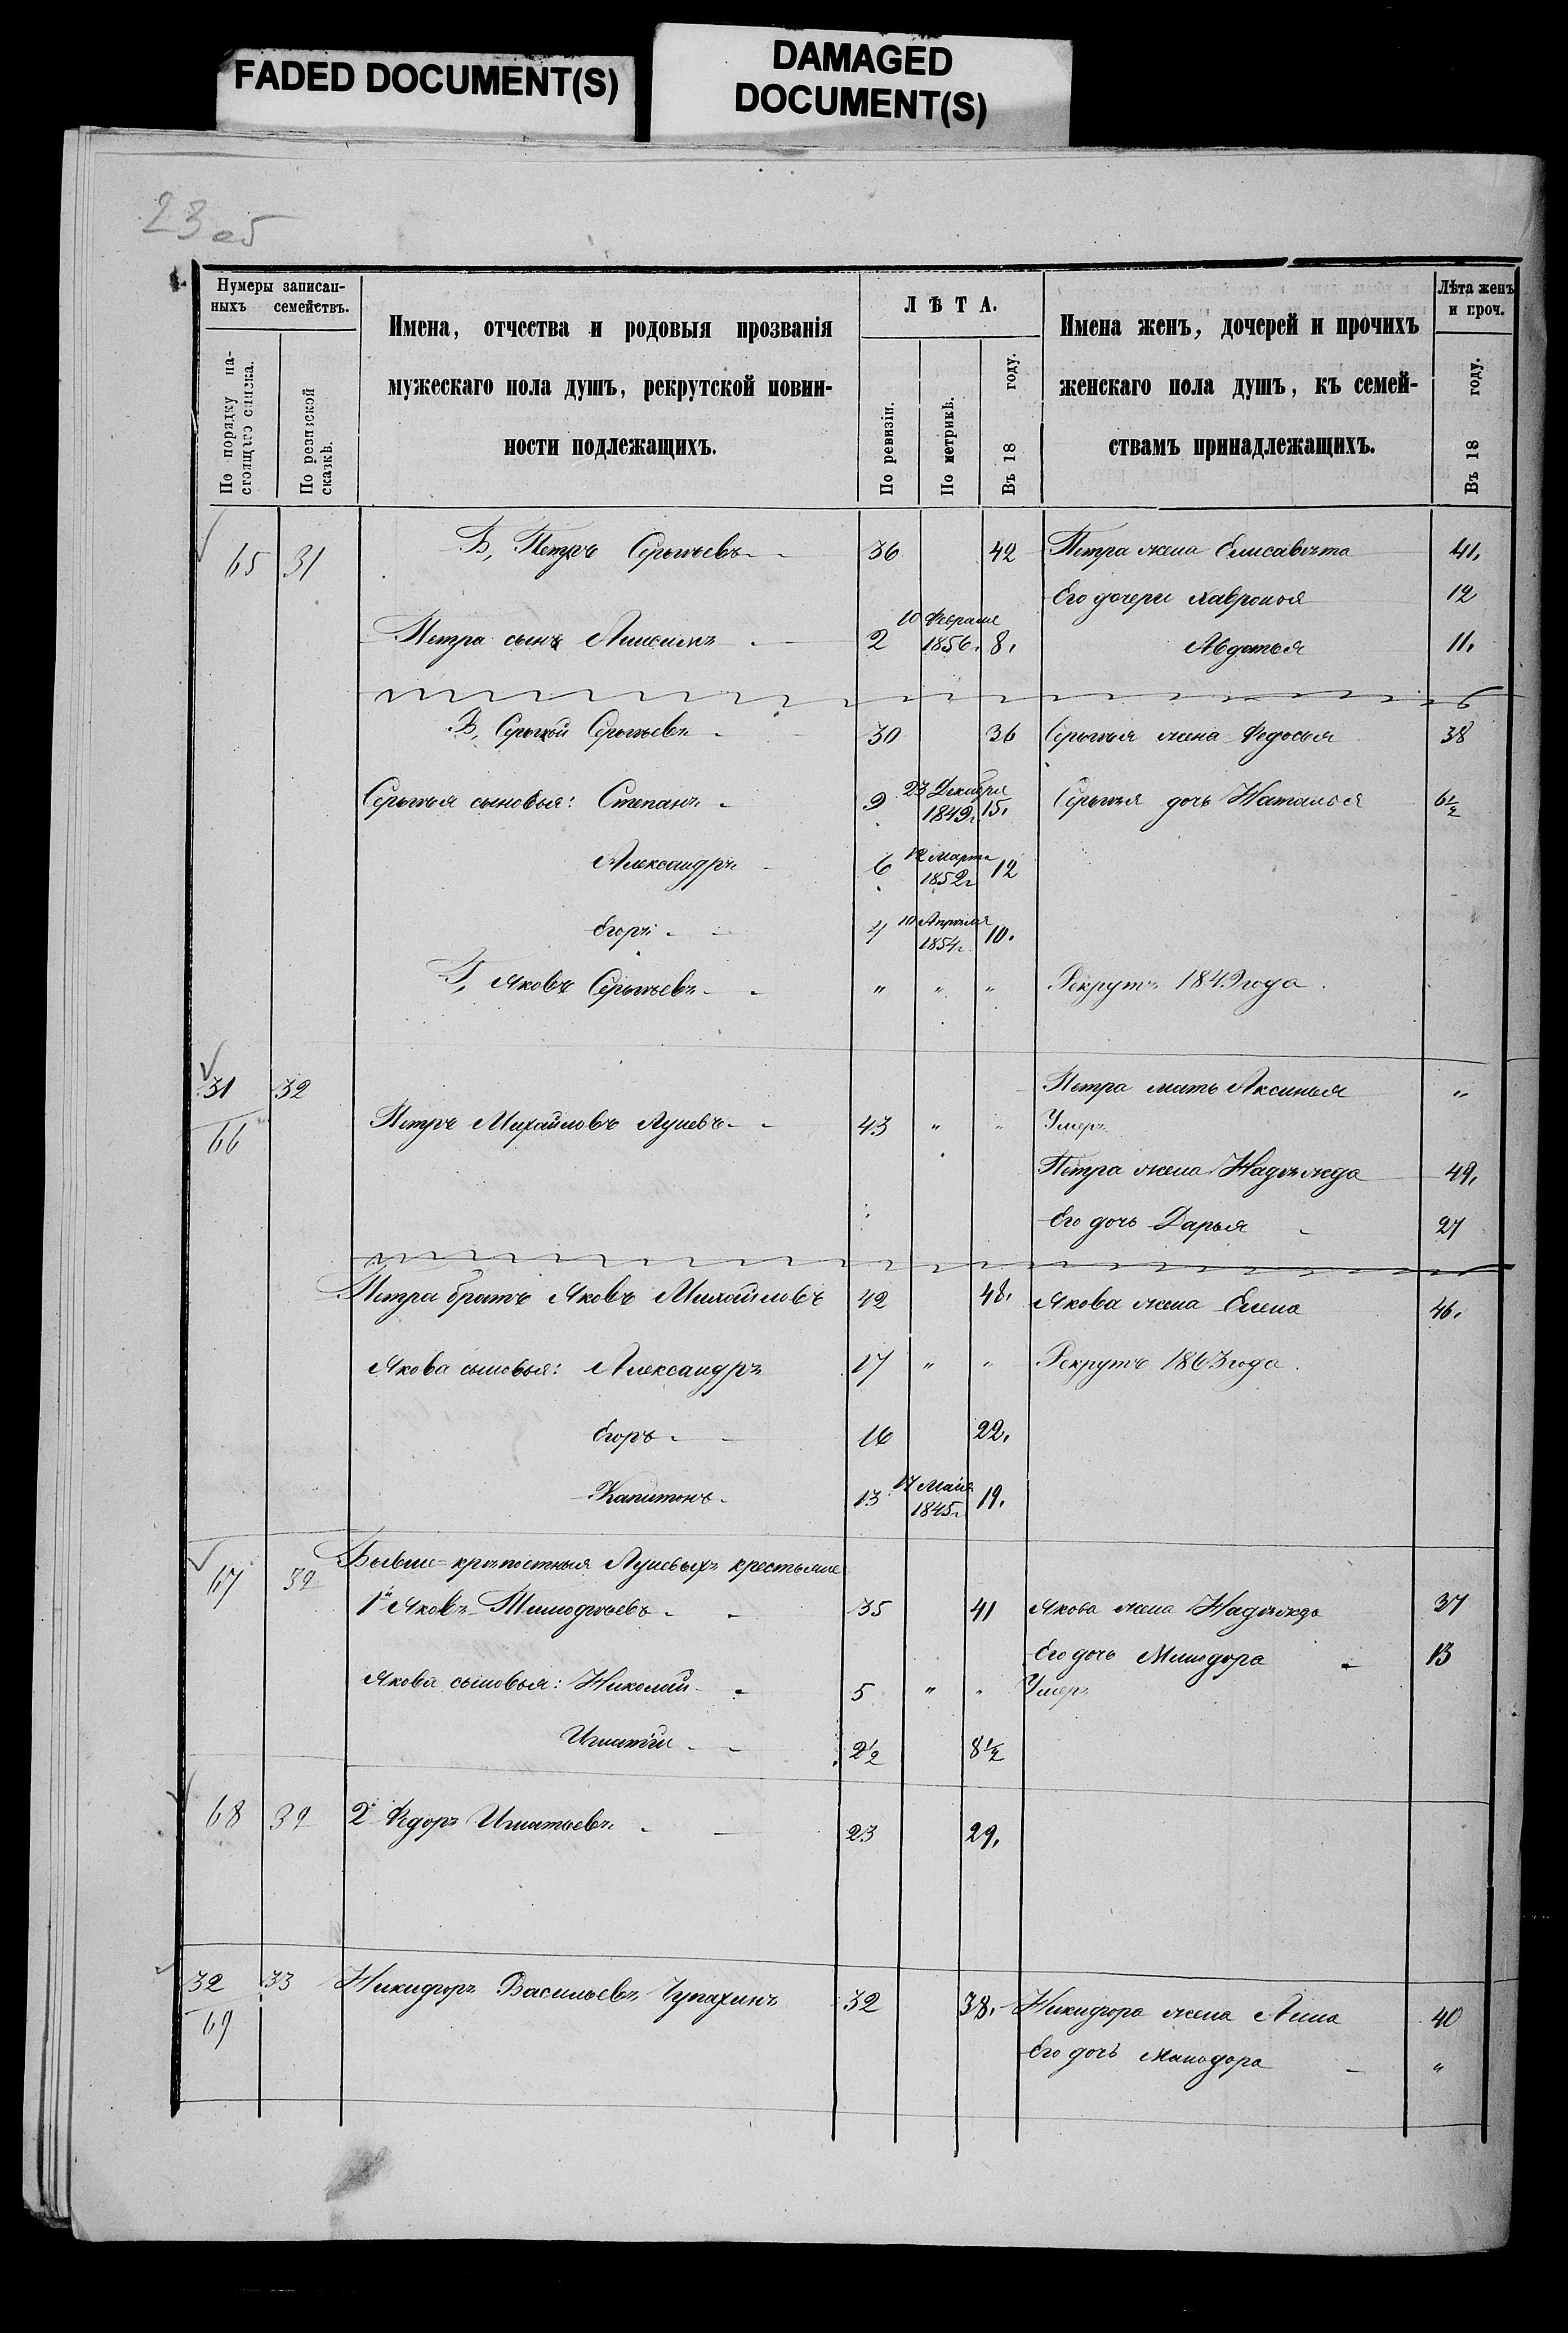 FADED DOCUMENT(S)
DAMAGED
DOCUMENT(S)
23 об
Нумеры записан-
ныхъ семействъ.
По порядку на-
стоящаго списка.
По ревизской
сказкѣ.
Имена, отчества и родовыя прозванія
мужескаго пола душъ, рекрутской повин-
ности подлежащихъ.
ЛѢТА.
По ревизіи.
По метрикѣ.
Въ 18 году.
Имена женъ, дочерей и прочихъ
женскаго пола душъ, къ семей-
ствамъ принадлежащихъ.
Лѣта женъ
и проч.
Въ 18 году.
65 31 Б, Петръ Сергѣевъ 36 42 Петра жена Елисавѣта 41.
Его дочери Хавронья 12
Петра сынъ 2 10 Февраля 1856. 8. Авдотья 11.
В, Сергѣй Сергѣевъ 30 36 Сергѣя жена Федосья 38
Сергѣя сыновья: Степанъ 9 23 Декабря 1849г. 15. Сергѣя дочь Наталья 6½
Александръ 6 12 Марта 1852г 12
Егоръ 4 10 Апрѣля 1854г. 10.
Г, Яковъ Сергѣевъ " " " Рекрутъ 1849 года.
31 32 Петра мать Аксинья "
66 Петръ Михайловъ Лушевъ 43 " " Умеръ
Петра жена Надѣжда 49.
Его дочь Дарья 27
Петра братъ Яковъ Михайловъ 42 48. Якова жена Елена 46.
Якова сыновья: Александръ 17 " " Рекрутъ 1863 года.
Егоръ 16 22.
Капитонъ 13 17 Мая 1845г. 19.
67 32 Бывше-крѣпостныя Лушевыхъ крестьяне
1й Яковъ Тимофѣевъ 35 41 Якова жена Надѣжда 37
Его дочь Минодора 13
Якова сыновья: Николай 5 " " Умеръ
Игнатій 2½ 8½
68 32 2й Федоръ Игнатьевъ 23 29.
32 33 Никифоръ Васильевъ Чупахинъ 32 38. Никифора жена Анна 40
69 Его дочь "